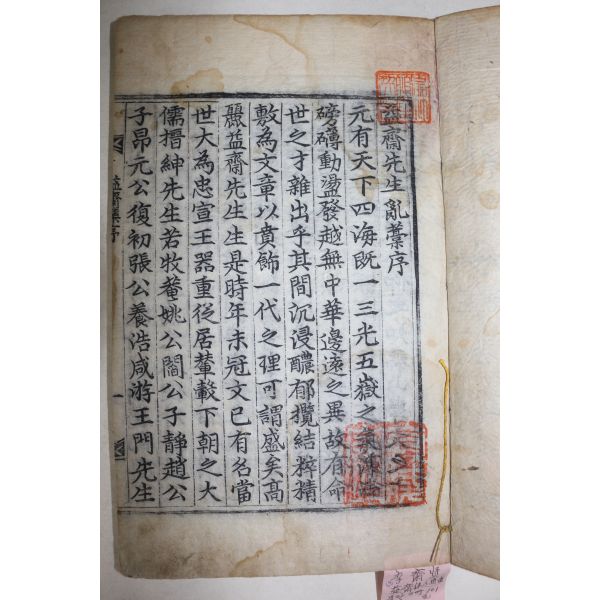 益齋先生亂藁序
元有天下四海既一三光五嶽之氣渾淪
磅礴動盪發越無中華邊遠之異故有命
世之才雜出乎其間沉浸醲郁攬結粹精
敷為文章以賁飾一代之理可謂盛矣高
麗益齋先生生是時年未冠文已有名當
世大為忠宣王器重従居輦轂下朝之大
儒搢紳先生若牧菴姚公閻公子靜趙公
子昂元公復初張公養浩咸游王門先生
益齋集序
一